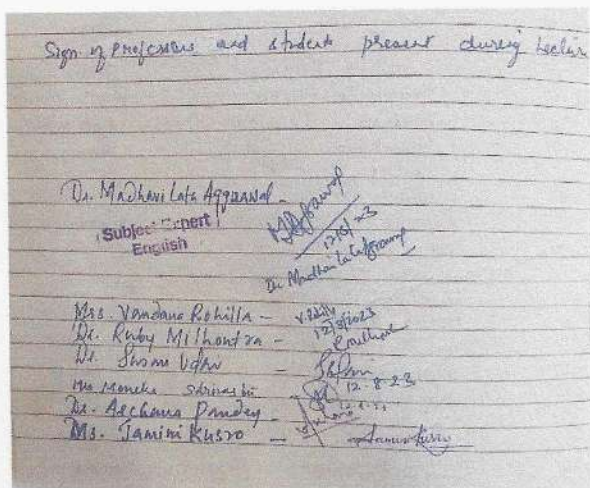 Sign of Professors and students present during lectur
Dr. Madhavi Lata Aggrawal -
Subject Expert
English
12/8/23
Dr Madhavi Lata Aggrawal
Mrs. Vandana Rohilla - V. Rohilla
12/8/2023
Dr. Ruby Milhoutra -
Dr. Susmi Udai -
Mrs Moncka 12.8.23
Dr. Archana Pandey -
Ms. Jamini Kusro - Jamini Kusro